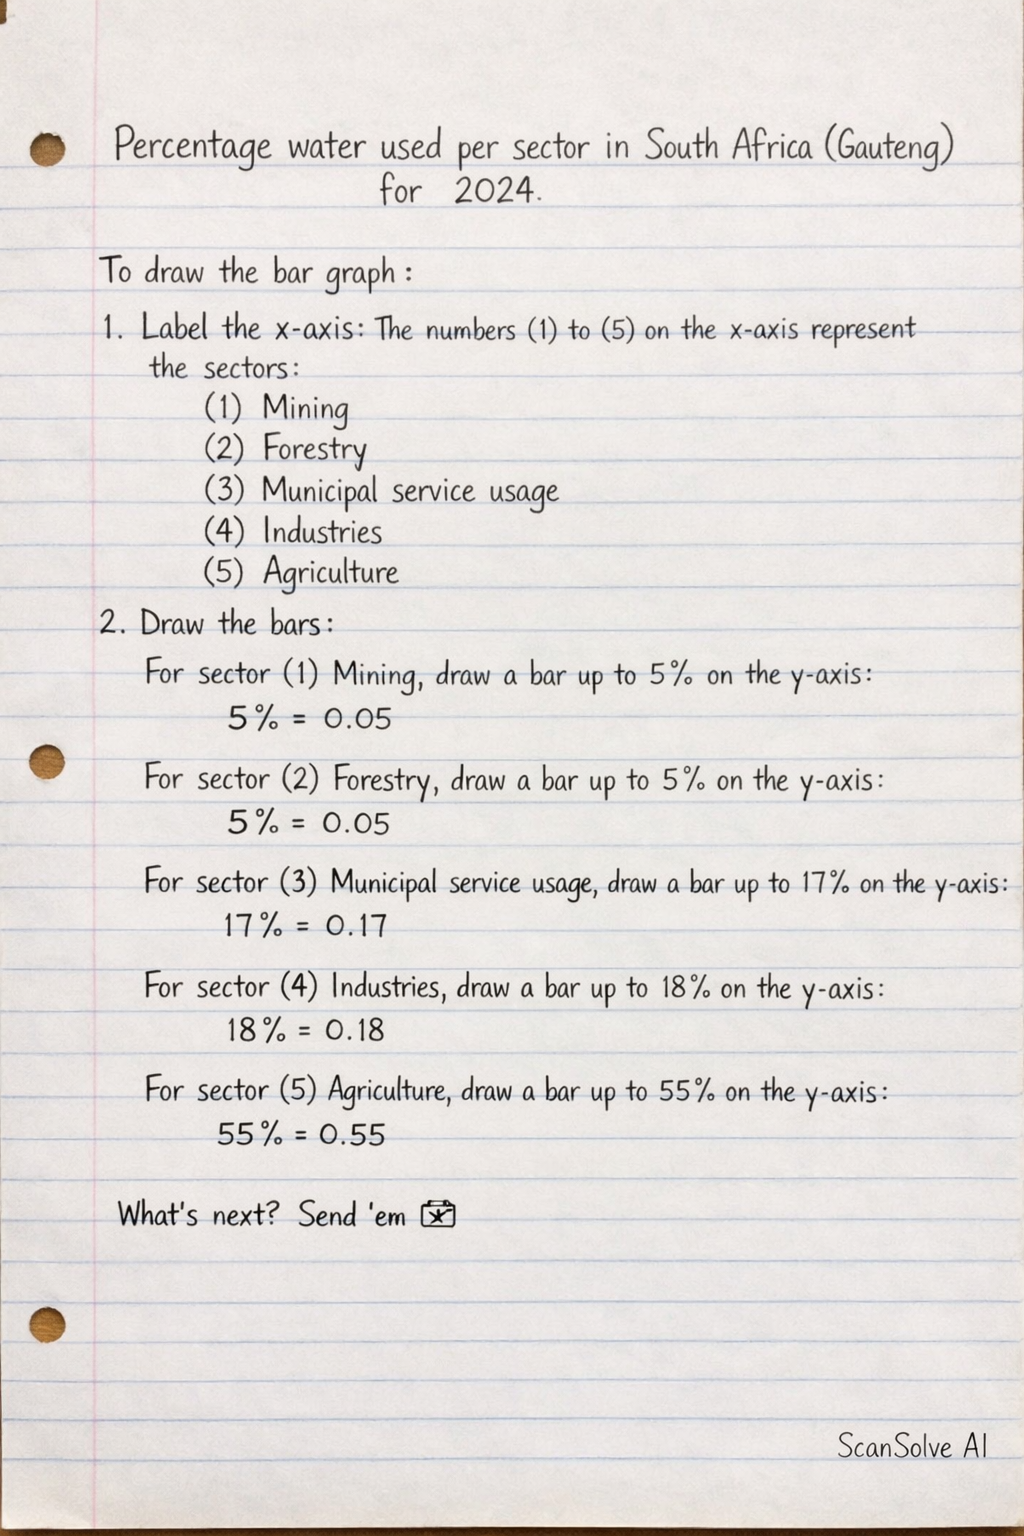 Percentage water used per sector in South Africa (Gauteng)
for 2024.
To draw the bar graph:
1. Label the x-axis: The numbers (1) to (5) on the x-axis represent
the sectors:
(1) Mining
(2) Forestry
(3) Municipal service usage
(4) Industries
(5) Agriculture
2. Draw the bars:
For sector (1) Mining, draw a bar up to 5% on the y-axis:
5% = 0.05
For sector (2) Forestry, draw a bar up to 5% on the y-axis:
5% = 0.05
For sector (3) Municipal service usage, draw a bar up to 17% on the y-axis:
17% = 0.17
For sector (4) Industries, draw a bar up to 18% on the y-axis:
18% = 0.18
For sector (5) Agriculture, draw a bar up to 55% on the y-axis:
55% = 0.55
What's next? Send 'em
ScanSolve AI